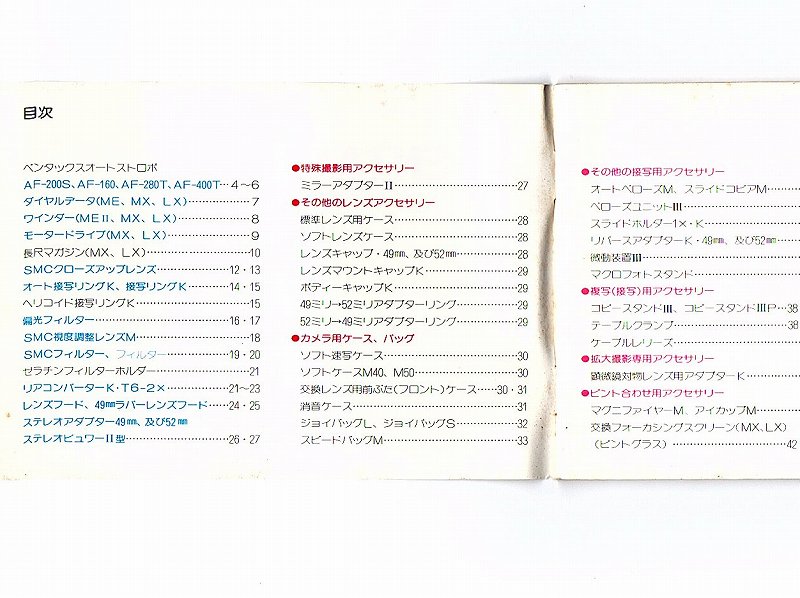 目次
ペンタックスオートストロボ
AF-200S、AF-160、AF-280T、AF-400T…4〜6
ダイヤルデータ(ME、MX、LX)…7
ワインダー(MEⅡ、MX、LX)…8
モータードライブ(MX、LX)…9
長尺マガジン(MX、LX)…10
SMCクローズアップレンズ…12・13
オート接写リングK、接写リングK…14・15
ヘリコイド接写リングK…15
偏光フィルター…16・17
SMC視度調整レンズM…18
SMCフィルター、フィルター…19・20
ゼラチンフィルターホルダー…21
リアコンバーターK・T6-2×…21〜23
レンズフード、49㎜ラバーレンズフード…24・25
ステレオアダプター49㎜、及び52㎜
ステレオビュワーⅡ型…26・27
●特殊撮影用アクセサリー
ミラーアダプターⅡ…27
●その他のレンズアクセサリー
標準レンズ用ケース…28
ソフトレンズケース…28
レンズキャップ・49㎜、及び52㎜…28
レンズマウントキャップK…29
ボディーキャップK…29
49ミリ→52ミリアダプターリング…29
52ミリ→49ミリアダプターリング…29
●カメラ用ケース、バッグ
ソフト速写ケース…30
ソフトケースM40、M50…30
交換レンズ用前ぶた(フロント)ケース…30・31
消音ケース…31
ジョイバッグL、ジョイバッグS…32
スピードバッグM…33
●その他の接写用アクセサリー
オートベローズM、スライドコピアM…
ベローズユニットⅢ…
スライドホルダー1×・K…
リバースアダプターK・49㎜、及び52㎜…
微動装置Ⅲ…
マクロフォトスタンド…
●複写(接写)用アクセサリー
コピースタンドⅢ、コピースタンドⅢP…38
テーブルクランプ…38
ケーブルレリーズ…
●拡大撮影専用アクセサリー
顕微鏡対物レンズ用アダプターK…
●ピント合わせ用アクセサリー
マグニファイヤーM、アイカップM…
交換フォーカシングスクリーン(MX、LX)
(ピントグラス)…42